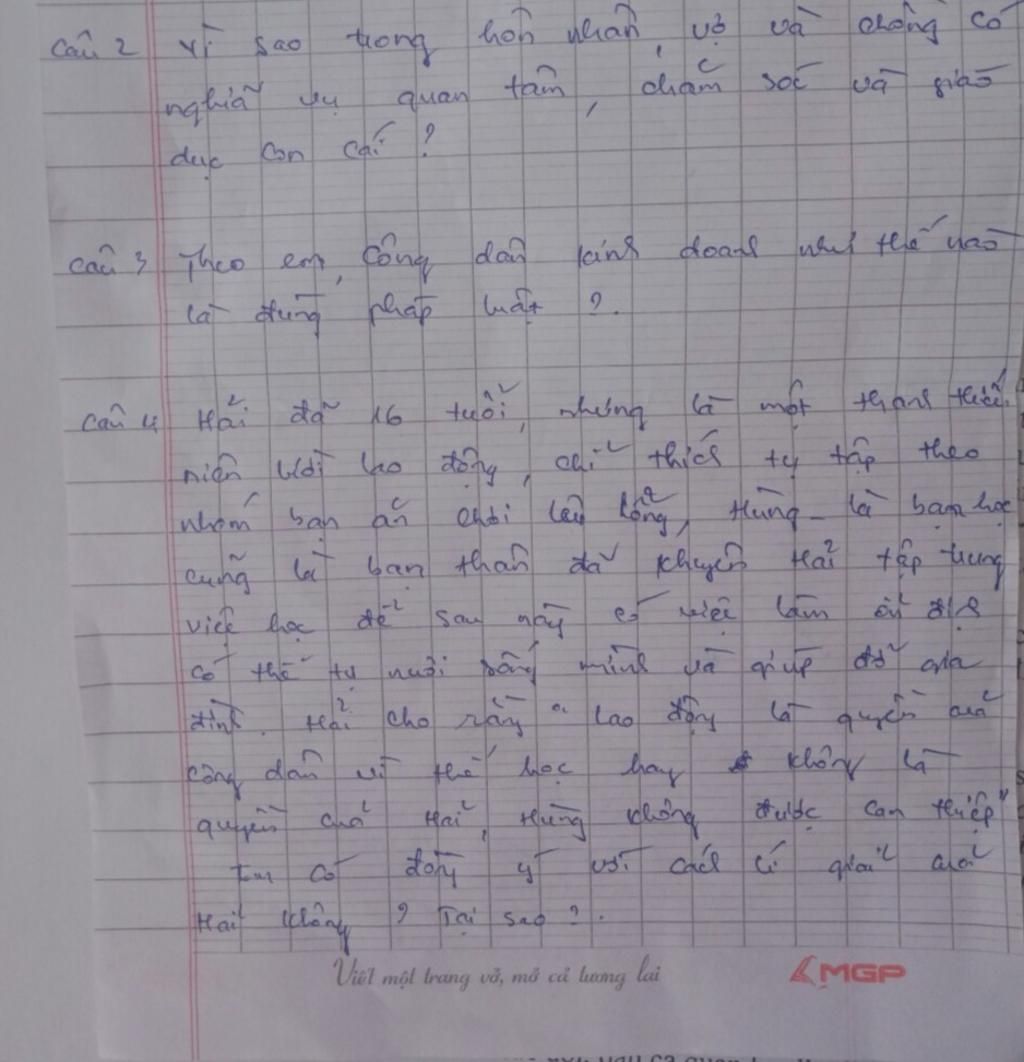 Câu 2 Vì sao trong hôn nhân, vợ và chồng có
nghĩa vụ quan tâm, chăm sóc và giáo
dục con cái ?
Câu 3 Theo em, công dân kinh doanh như thế nào
là đúng pháp luật ?.
Câu 4 Hải đã 16 tuổi, nhưng là một thanh thiếu
niên lười lao động, chỉ thích tụ tập theo
nhóm bạn ăn chơi lêu lổng, Hùng - là bạn học
cũng là bạn thân đã khuyên Hải tập trung
việc học để sau này có việc làm ổn định
có thể tự nuôi sống mình và giúp đỡ gia
đình. Hải cho rằng " lao động là quyền của
công dân vì thế học hay không là
quyền của Hải, Hùng không được can thiệp"
Em có đồng ý với cách lí giải của
Hải không ? Tại sao ?.
Viết một trang vở, mở cả tương lai
MGP